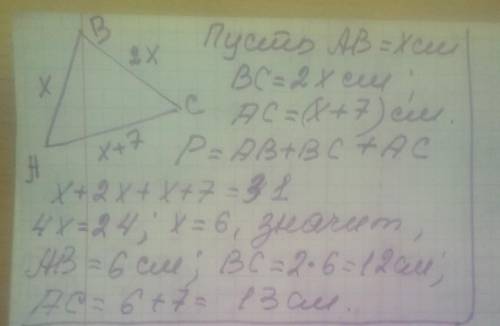 B
2x
x
C
x+7
A
Пусть AB=xсм
BC=2xсм;
AC=(x+7)см.
P=AB+BC+AC
x+2x+x+7=31
4x=24; x=6, значит,
AB=6см; BC=2·6=12см;
AC=6+7=13см.